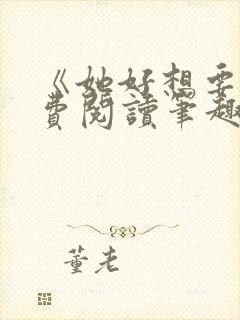 《她好想要
費閱讀筆趣
董老